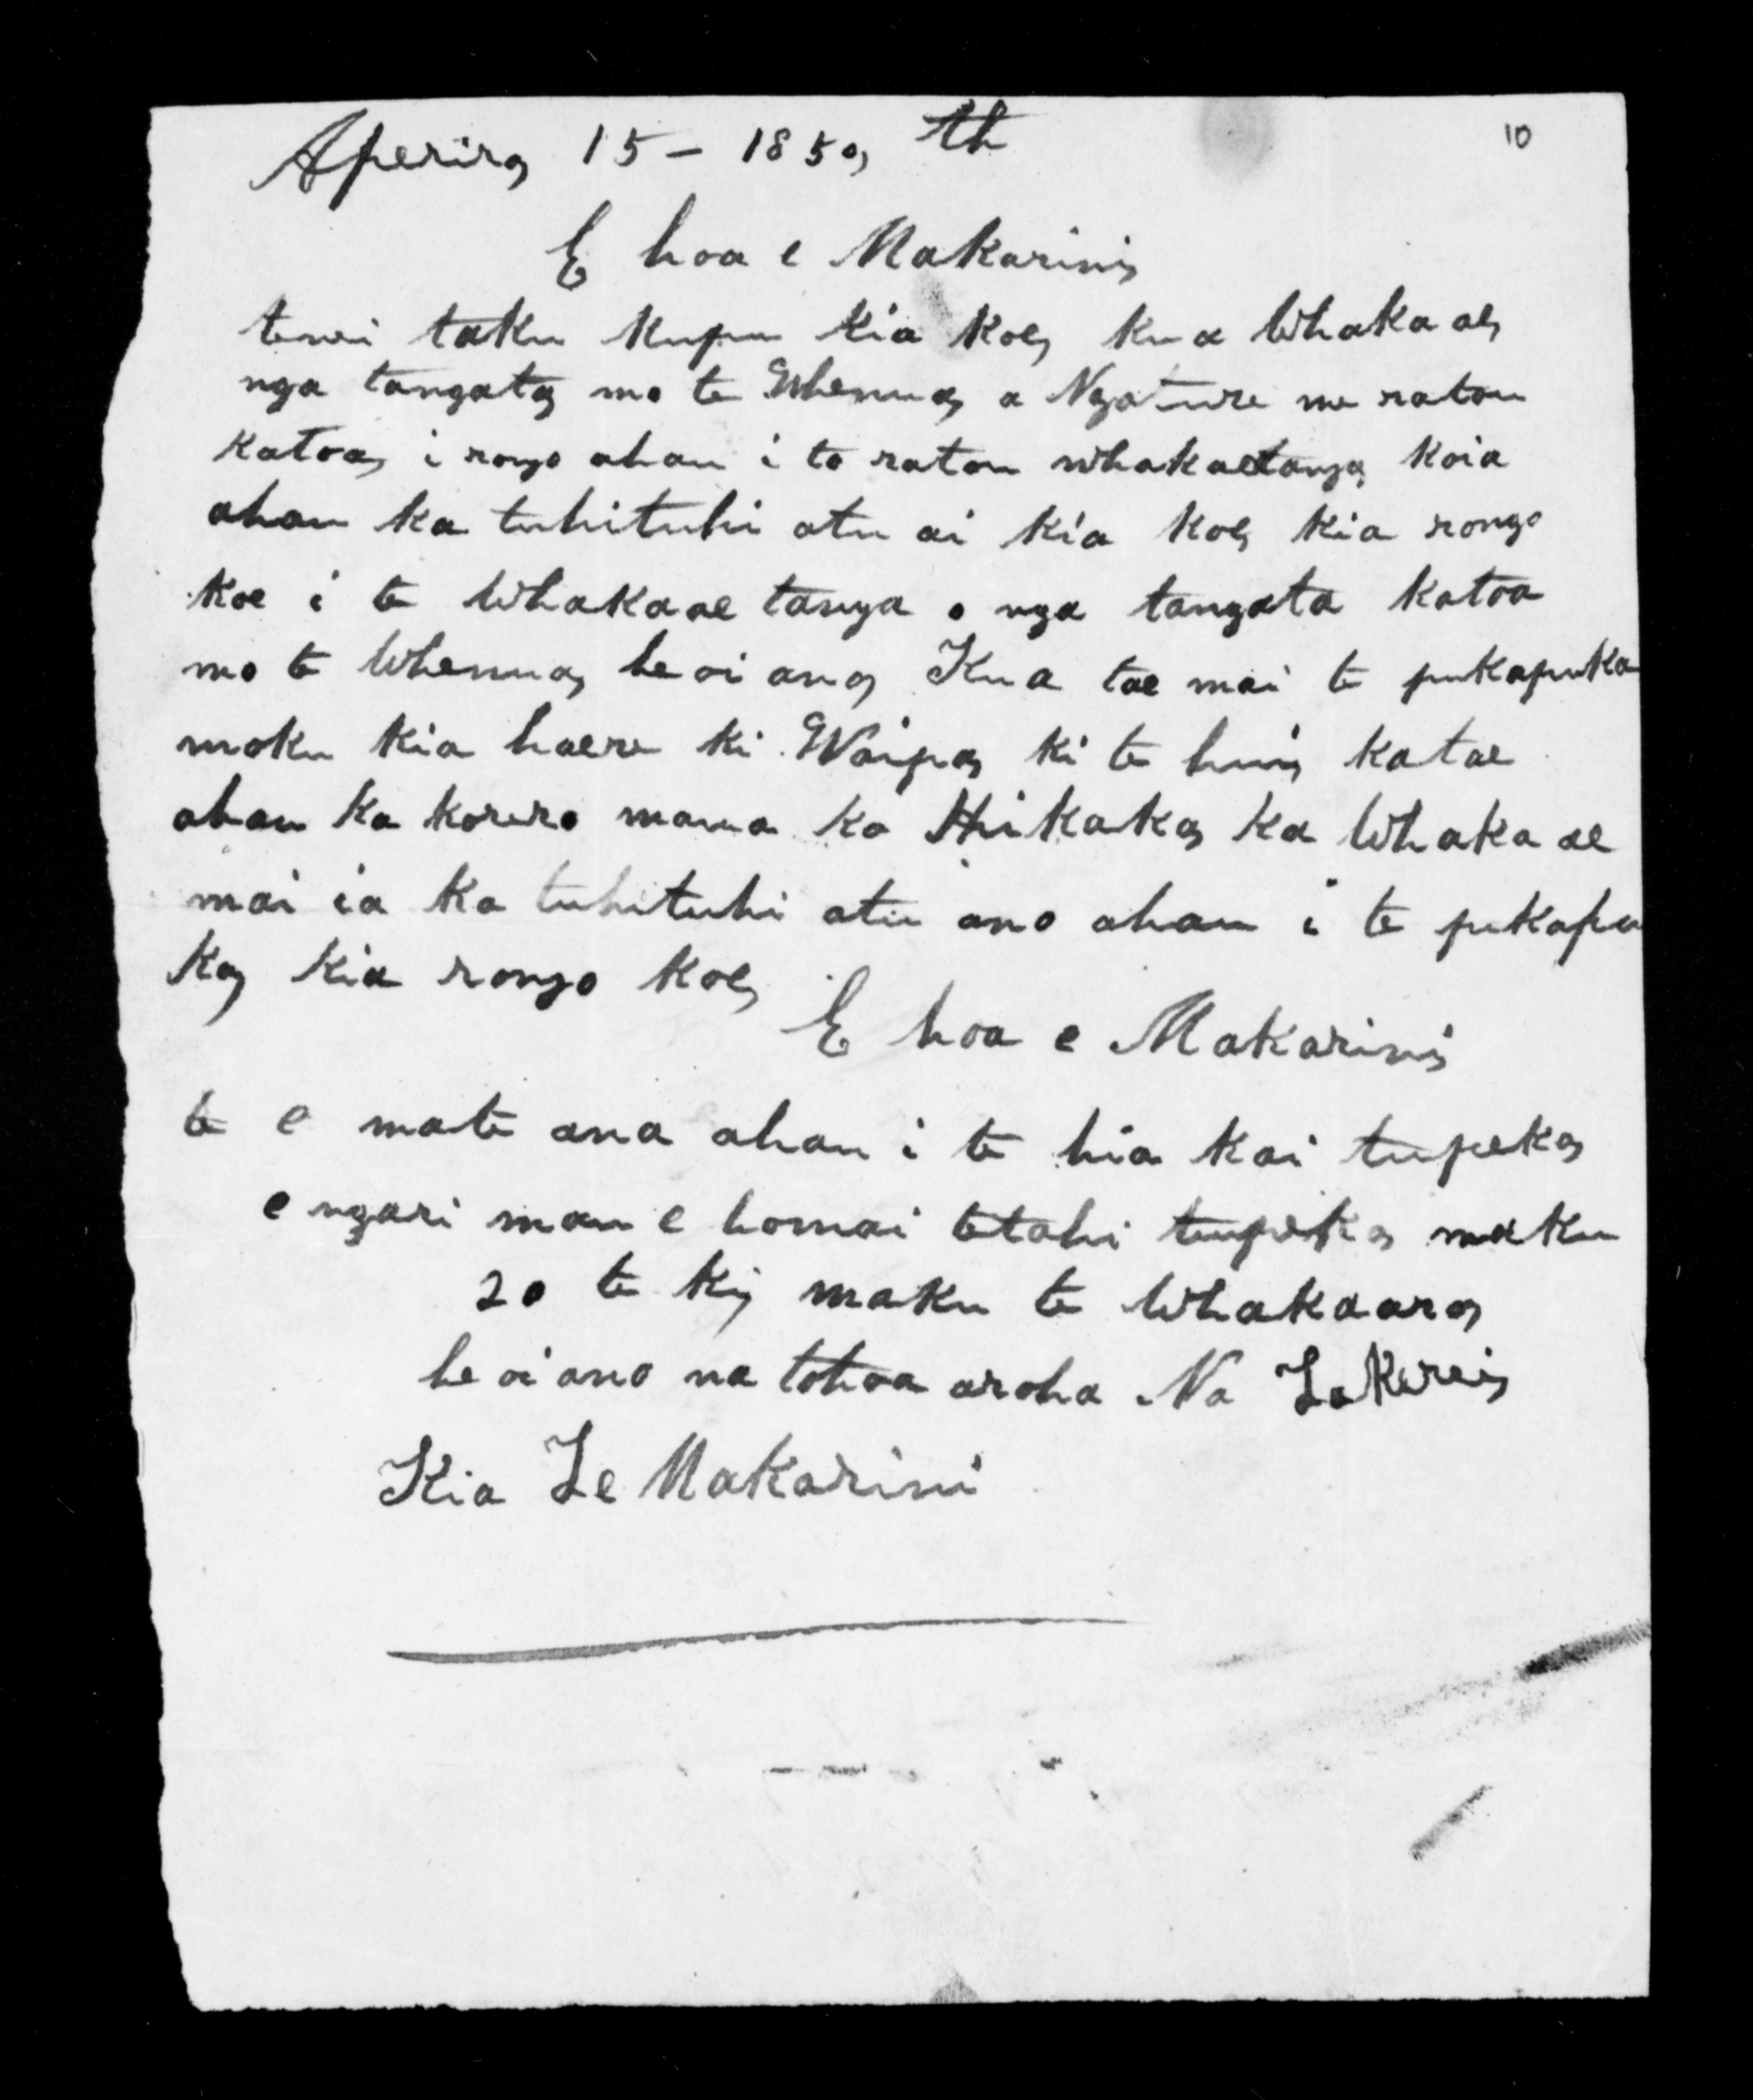 Aperira, 15 - 1850, th
10
E hoa e Makarini,
tenei taku kupu kia koe, kua Whaka ae,
nga tangata, mo te Whenua, a Ngature me ratou
katoa, i rongo ahau i to ratou whakaetanga, koia
ahau ka tuhituhi atu ai kia koe, kia rongo
koe i te Whakaae tanga o nga tangata katoa
mo te Whenua, he oi ano, Kua tae mai te pukapuka
moku kia haere ki Waipa, ki te hui, ka tae
ahau ka korero mama ko Hikaka, ka Whaka ae
mai ia ka tuhituhi atu ano ahau i te pukapu
ka, kia rongo koe,
E hoa e Makarini,
te e mate ana ahau i te hia kai tupeka,
e ngari mau e homai tetahi tupeka, maku
20 te ki, maku te Whakaaro,
he oi ano na tohoa aroha Na Takerei,
Kia Te Makarini